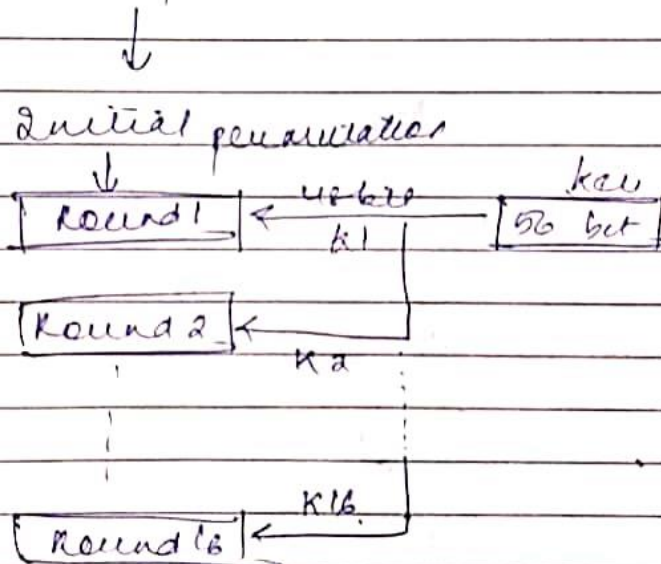 Initial permutation
key
Round 1
48-bits
56 bit
K1
Round 2
K2
K16
Round 16